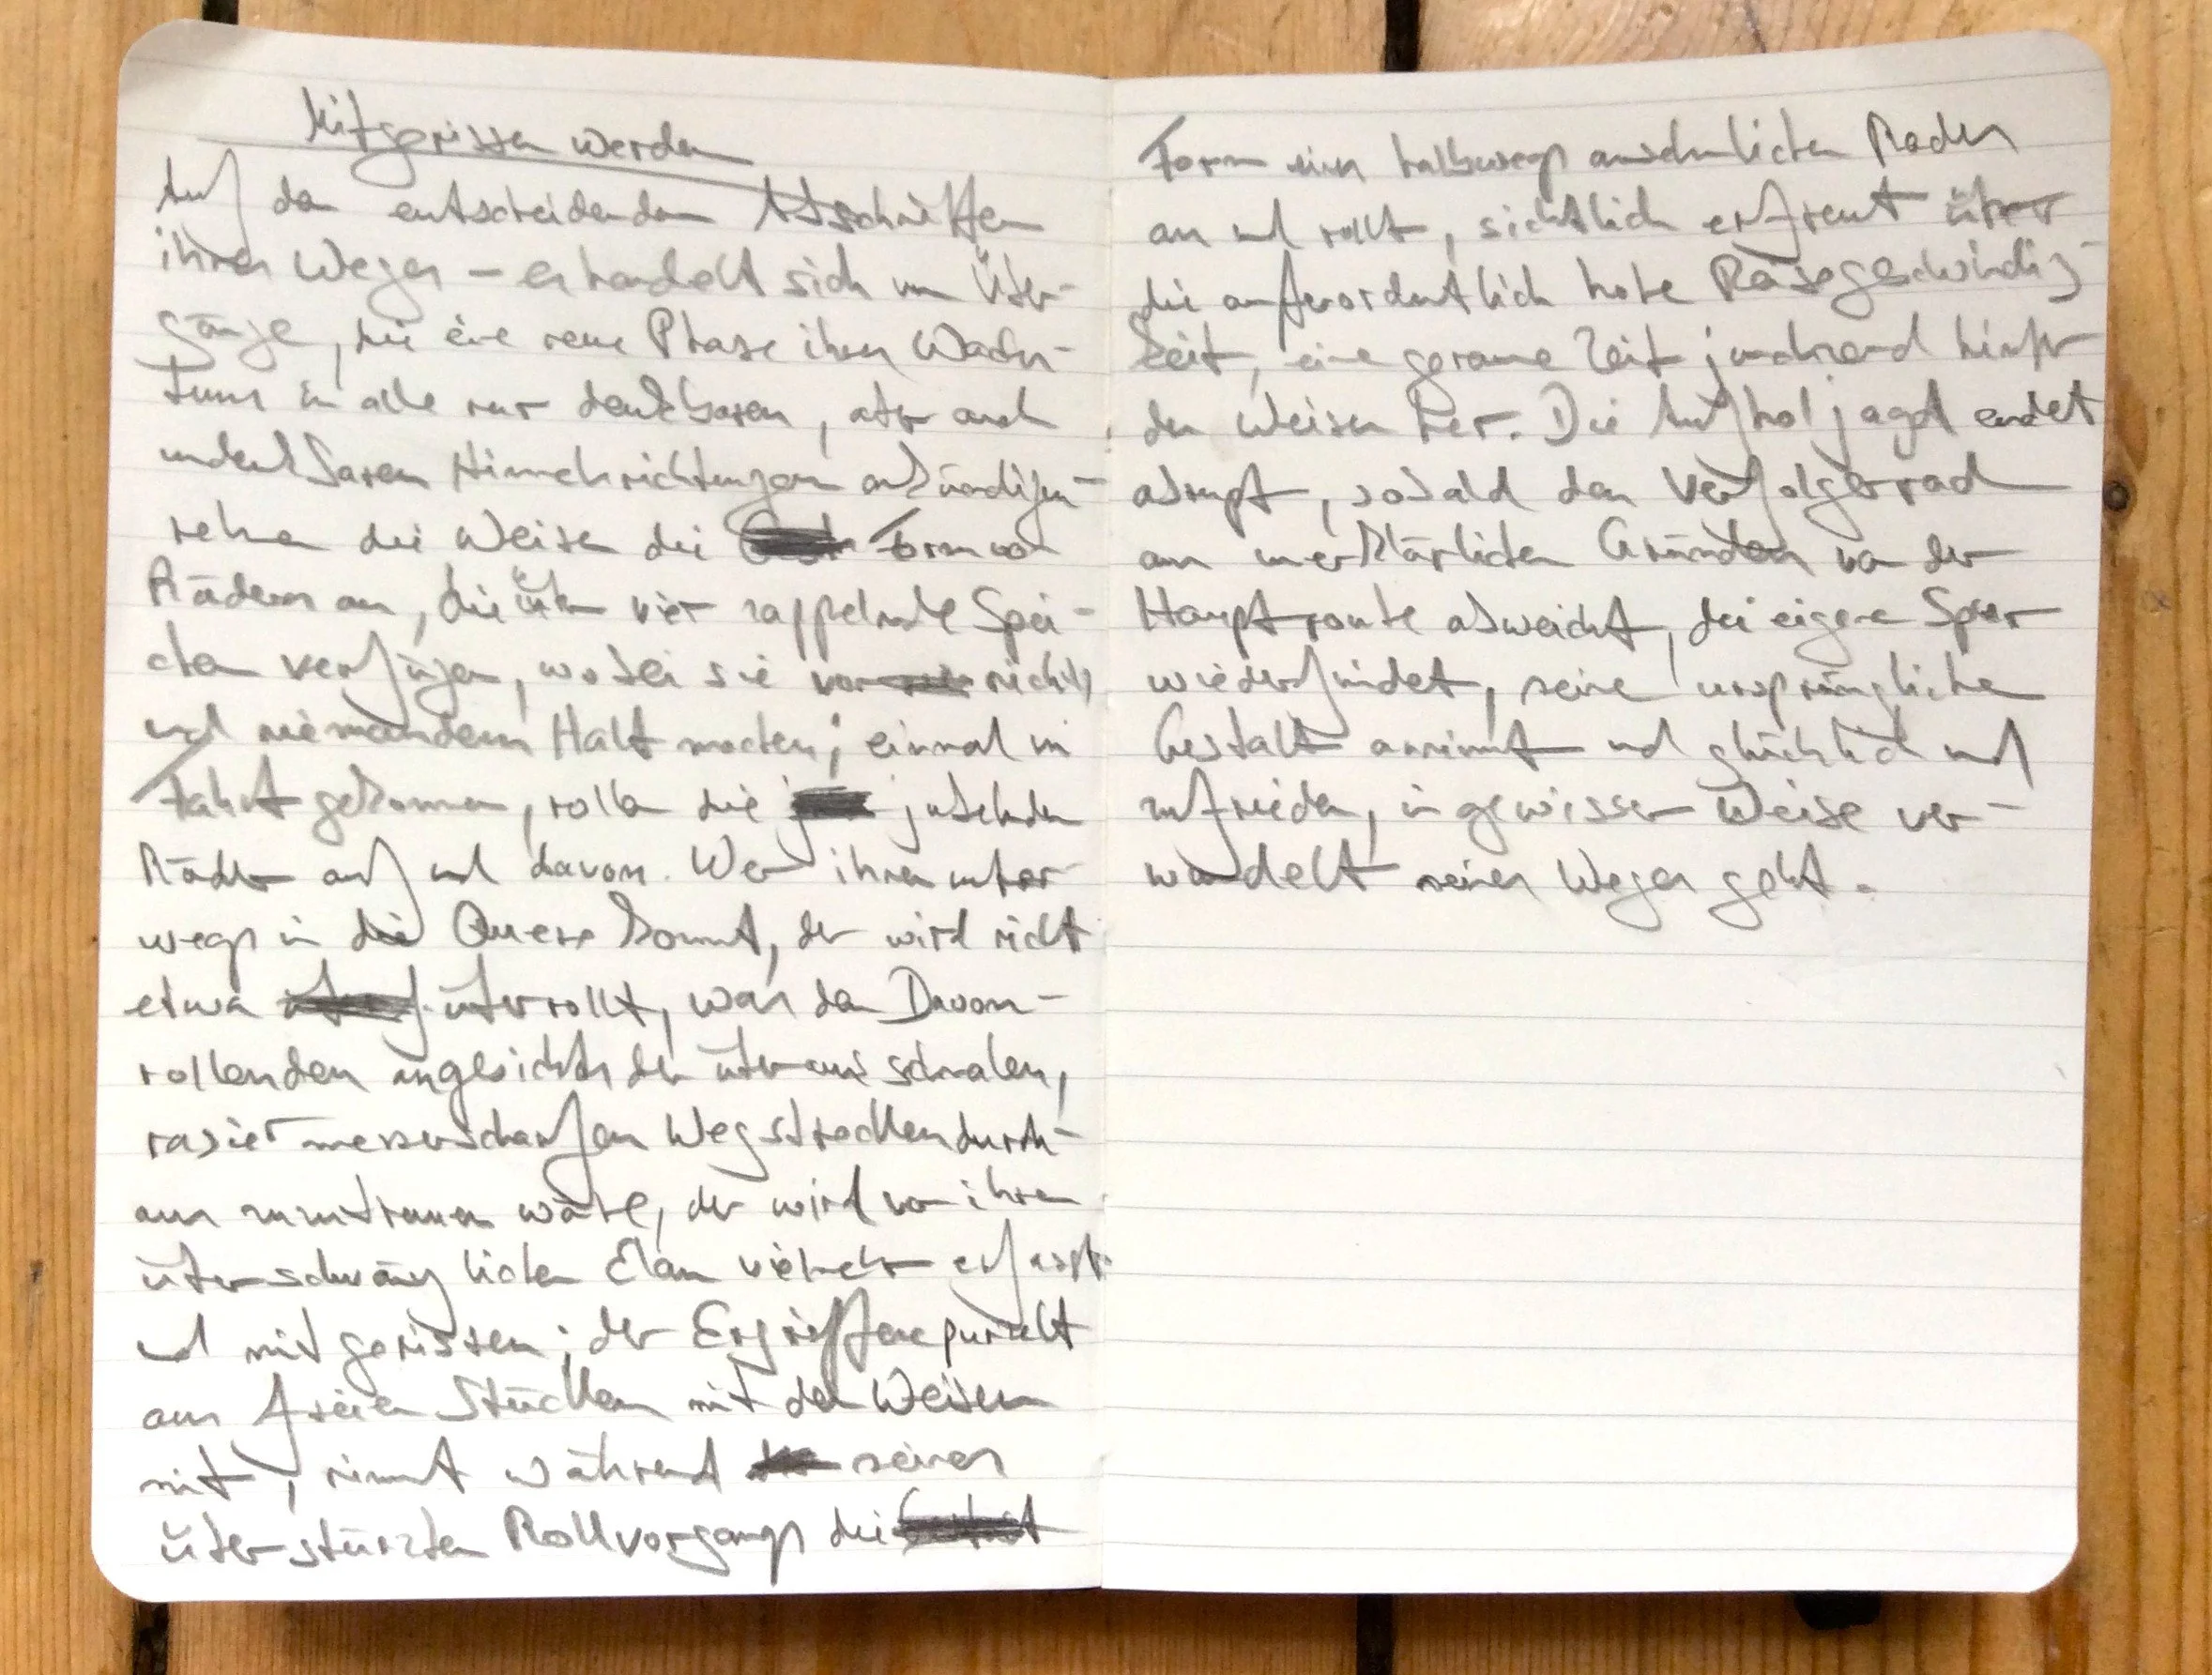 Mitgerissen werden
Auf den entscheidenden Abschnitten
ihres Weges – es handelt sich um Über-
gänge, die eine neue Phase ihres Wachs-
tums in alle nur denkbaren, aber auch
undenkbaren Himmelsrichtungen ankündigen –
nehmen die Weisen die Form von
Rädern an, die über vier rappelnde Spei-
chen verfügen, wobei sie vor nichts
und niemandem Halt machen; einmal in
Fahrt gekommen, rollen die jubelnden
Räder auf und davon. Wer ihnen unter-
wegs in die Quere kommt, der wird nicht
etwa überrollt, was den Davon-
rollenden angesichts der überaus schmalen,
rasiermesserscharfen Wegstrecken durch-
aus zuzutrauen wäre, der wird von ihrem
überschwänglichen Elan vielmehr erfasst
und mitgerissen; der Ergriffene purzelt
aus freien Stücken mit den Weisen
mit, nimmt während seines
überstürzten Rollvorgangs die
Form eines halbwegs ansehnlichen Rades
an und rollt, sichtlich erfreut über
die außerordentlich hohe Reisegeschwindig-
keit, eine geraume Zeit juchzend hinter
den Weisen her. Die Aufholjagd endet
abrupt, sobald das Verfolgerrad
aus unerklärlichen Gründen von der
Hauptroute abweicht, die eigene Spur
wiederfindet, seine ursprüngliche
Gestalt annimmt und glücklich und
zufrieden, in gewisser Weise ver-
wandelt seines Weges geht.